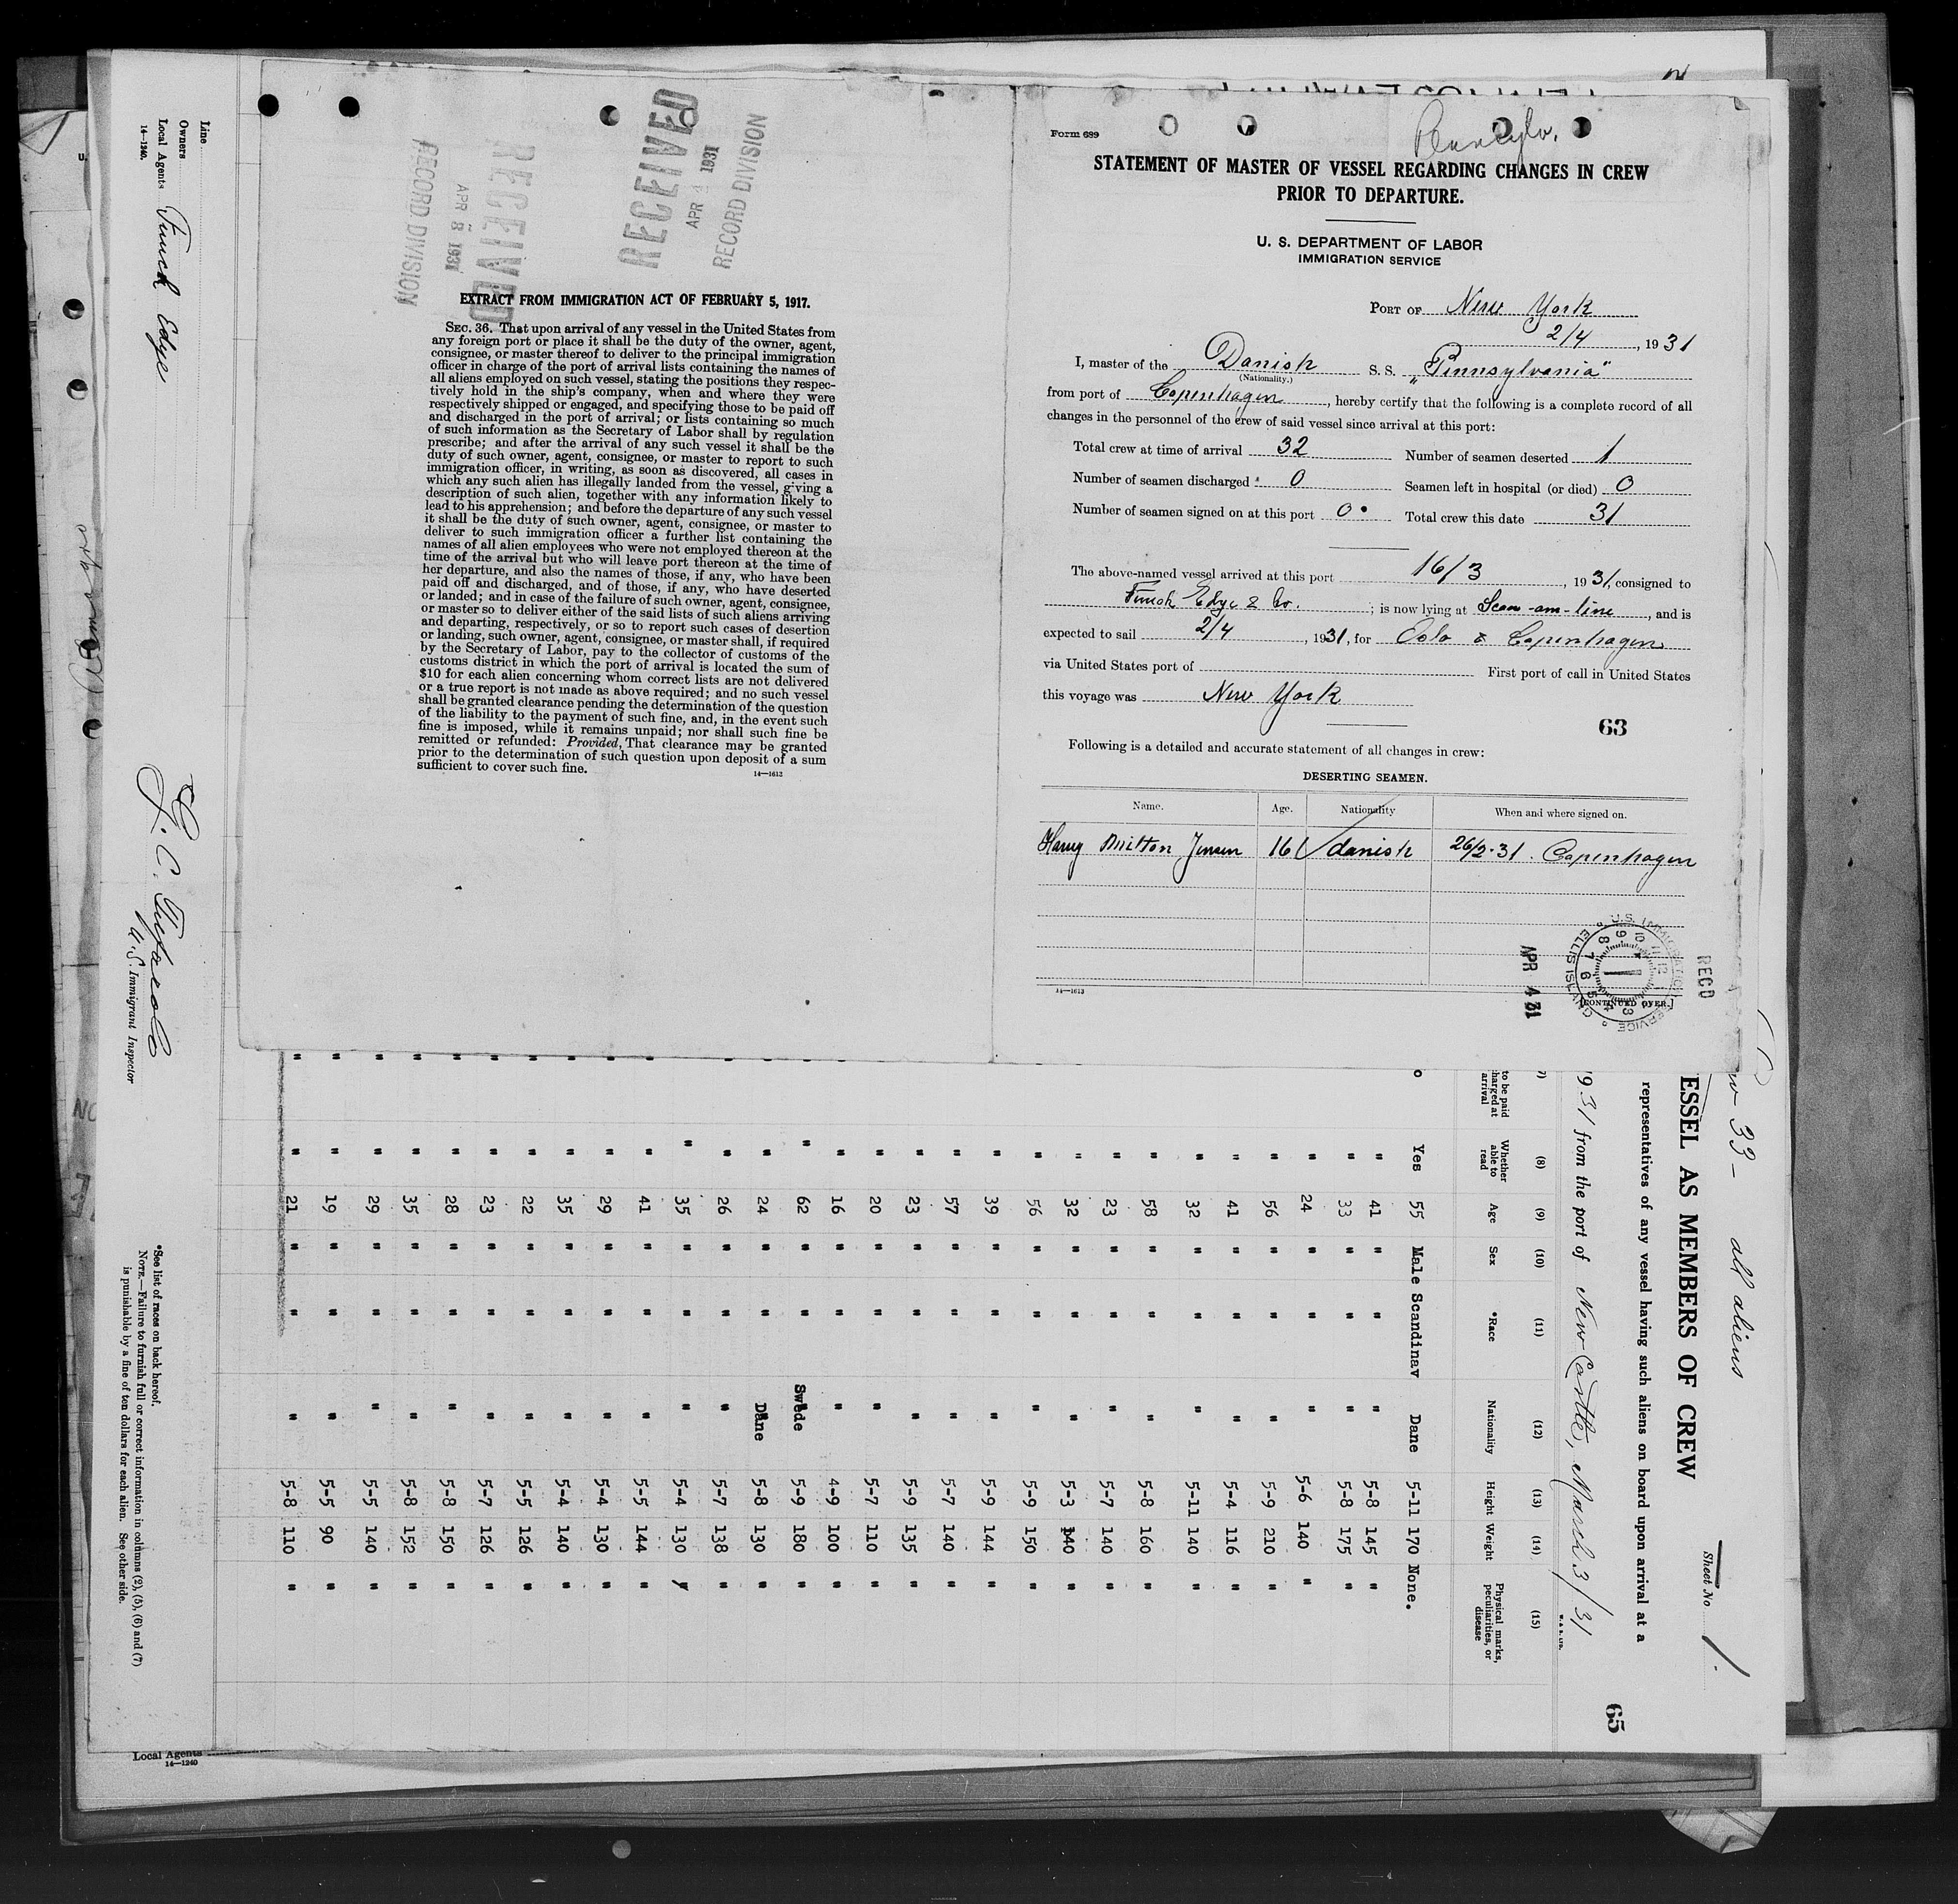 Form 689
STATEMENT OF MASTER OF VESSEL REGARDING CHANGES IN CREW
PRIOR TO DEPARTURE.
U. S. DEPARTMENT OF LABOR
IMMIGRATION SERVICE
PORT OF New York
2/4, 1931
I, master of the Danish S. S. „Pennsylvania"
(Nationality.)
from port of Copenhagen, hereby certify that the following is a complete record of all
changes in the personnel of the crew of said vessel since arrival at this port:
Total crew at time of arrival 32 Number of seamen deserted 1
Number of seamen discharged 0 Seamen left in hospital (or died) 0
Number of seamen signed on at this port 0 Total crew this date 31
The above-named vessel arrived at this port 16/3, 1931, consigned to
Funch Edye & Co.; is now lying at Scan-am-line, and is
expected to sail 2/4, 1931, for Oslo & Copenhagen
via United States port of First port of call in United States
this voyage was New York
63
Following is a detailed and accurate statement of all changes in crew:
DESERTING SEAMEN.
Name. Age. Nationality When and where signed on.
Harry Milton Jensen 16 danish 26/2-31. Copenhagen
14—1613
[CONTINUED OVER.]
U.S. IMMIGRATION SERVICE
ELLIS ISLAND
REC'D
APR 4 31
RECEIVED
APR 8 1931
RECORD DIVISION
RECEIVED
APR 4 1931
RECORD DIVISION
EXTRACT FROM IMMIGRATION ACT OF FEBRUARY 5, 1917.
SEC. 36. That upon arrival of any vessel in the United States from
any foreign port or place it shall be the duty of the owner, agent,
consignee, or master thereof to deliver to the principal immigration
officer in charge of the port of arrival lists containing the names of
all aliens employed on such vessel, stating the positions they respec-
tively hold in the ship's company, when and where they were
respectively shipped or engaged, and specifying those to be paid off
and discharged in the port of arrival; or lists containing so much
of such information as the Secretary of Labor shall by regulation
prescribe; and after the arrival of any such vessel it shall be the
duty of such owner, agent, consignee, or master to report to such
immigration officer, in writing, as soon as discovered, all cases in
which any such alien has illegally landed from the vessel, giving a
description of such alien, together with any information likely to
lead to his apprehension; and before the departure of any such vessel
it shall be the duty of such owner, agent, consignee, or master to
deliver to such immigration officer a further list containing the
names of all alien employees who were not employed thereon at the
time of the arrival but who will leave port thereon at the time of
her departure, and also the names of those, if any, who have been
paid off and discharged, and of those, if any, who have deserted
or landed; and in case of the failure of such owner, agent, consignee,
or master so to deliver either of the said lists of such aliens arriving
and departing, respectively, or so to report such cases of desertion
or landing, such owner, agent, consignee, or master shall, if required
by the Secretary of Labor, pay to the collector of customs of the
customs district in which the port of arrival is located the sum of
$10 for each alien concerning whom correct lists are not delivered
or a true report is not made as above required; and no such vessel
shall be granted clearance pending the determination of the question
of the liability to the payment of such fine, and, in the event such
fine is imposed, while it remains unpaid; nor shall such fine be
remitted or refunded: Provided, That clearance may be granted
prior to the determination of such question upon deposit of a sum
sufficient to cover such fine.
14—1613
33 - all aliens
Sheet No. 1.
ESSEL AS MEMBERS OF CREW
65
representatives of any vessel having such aliens on board upon arrival at a
1931 from the port of New Castle, March 3/31
(8) (9) (10) (11) (12) (13) (14) (15)
to be paid
harged at
arrival
Whether able to read Age Sex *Race Nationality Height Weight Physical marks, peculiarities, or disease
Yes 55 Male Scandinav Dane 5-11 170 None.
" 41 " " " 5-8 145 "
" 33 " " " 5-8 175 "
" 24 " " " 5-6 140 "
" 56 " " " 5-9 210 "
" 41 " " " 5-4 116 "
" 32 " " " 5-11 140 "
" 58 " " " 5-8 160 "
" 23 " " " 5-7 140 "
" 32 " " " 5-3 140 "
" 56 " " " 5-9 150 "
" 39 " " " 5-9 144 "
" 57 " " " 5-7 140 "
" 23 " " " 5-9 135 "
" 20 " " " 5-7 110 "
" 16 " " " 4-9 100 "
" 62 " " Swede 5-9 180 "
" 24 " " Dane 5-8 130 "
" 26 " " " 5-7 138 "
" 35 " " " 5-4 130 "
" 41 " " " 5-5 144 "
" 29 " " " 5-4 130 "
" 35 " " " 5-4 140 "
" 22 " " " 5-5 126 "
" 23 " " " 5-7 126 "
" 28 " " " 5-8 150 "
" 35 " " " 5-8 152 "
" 29 " " " 5-5 140 "
" 19 " " " 5-5 90 "
" 21 " " " 5-8 110 "
Line
Owners
Local Agents Funch Edye
14—1240.
U.S. Immigrant Inspector
*See list of races on back hereof.
NOTE.—Failure to furnish full or correct information in columns (2), (5), (6) and (7)
is punishable by a fine of ten dollars for each alien. See other side.
Local Agents
14—1240